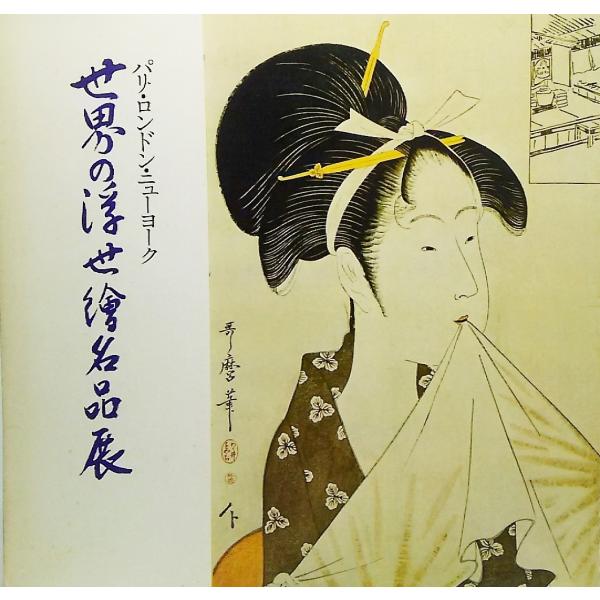 パリ・ロンドン・ニューヨーク
世界の浮世繪名品展
哥麿筆